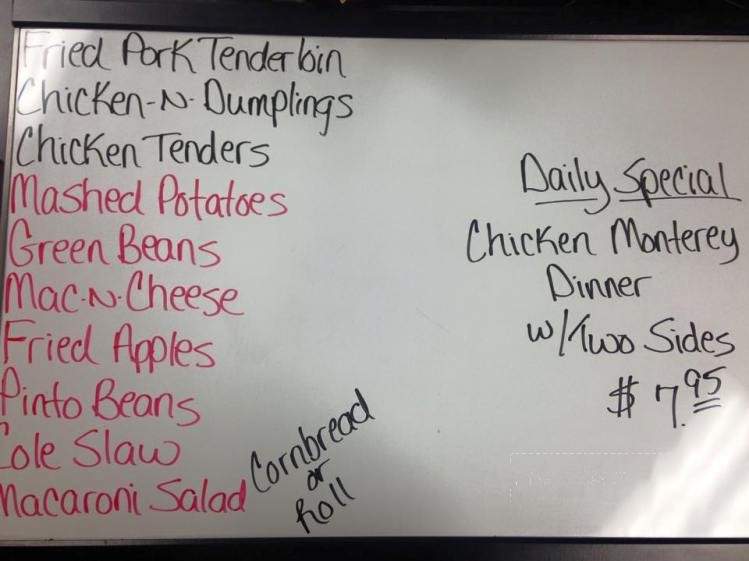 Fried Pork Tenderloin
Chicken-N-Dumplings
Chicken Tenders
Mashed Potatoes
Green Beans
Mac-N-Cheese
Fried Apples
Pinto Beans
Cole Slaw
Macaroni Salad
Cornbread
or
Roll
Daily Special
Chicken Monterey
Dinner
w/Two Sides
$7.95